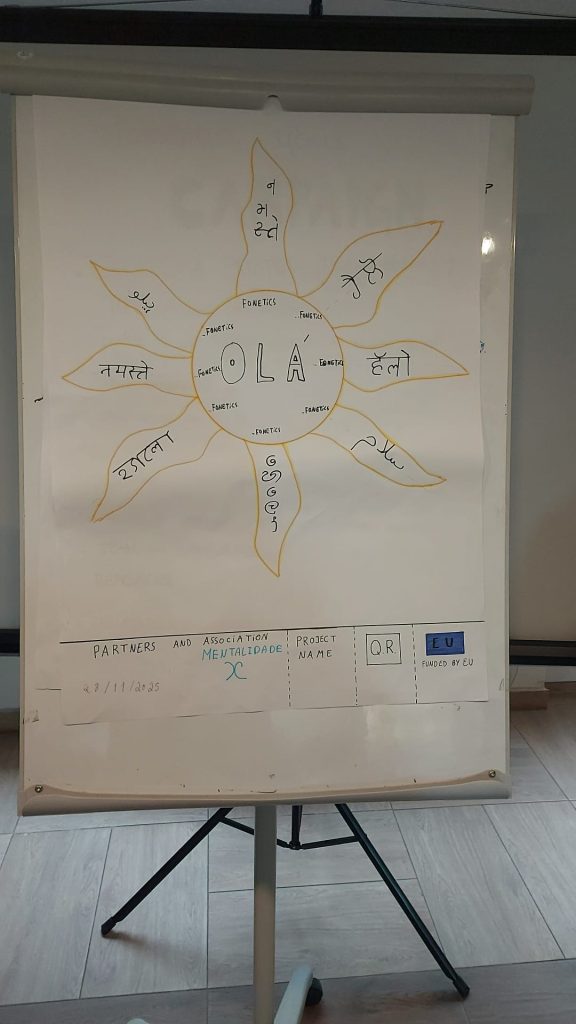 न
म
स्ते
FONETICS
-FONETICS
-FONETICS
OLÁ
-FONETICS
-FONETICS
-FONETICS
-FONETICS
-FONETICS
नमस्ते
हॅलो
سلام
PARTNERS AND ASSOCIATION
MENTALIDADE
X
PROJECT
NAME
QR
EU
FUNDED BY EU
28/11/2025